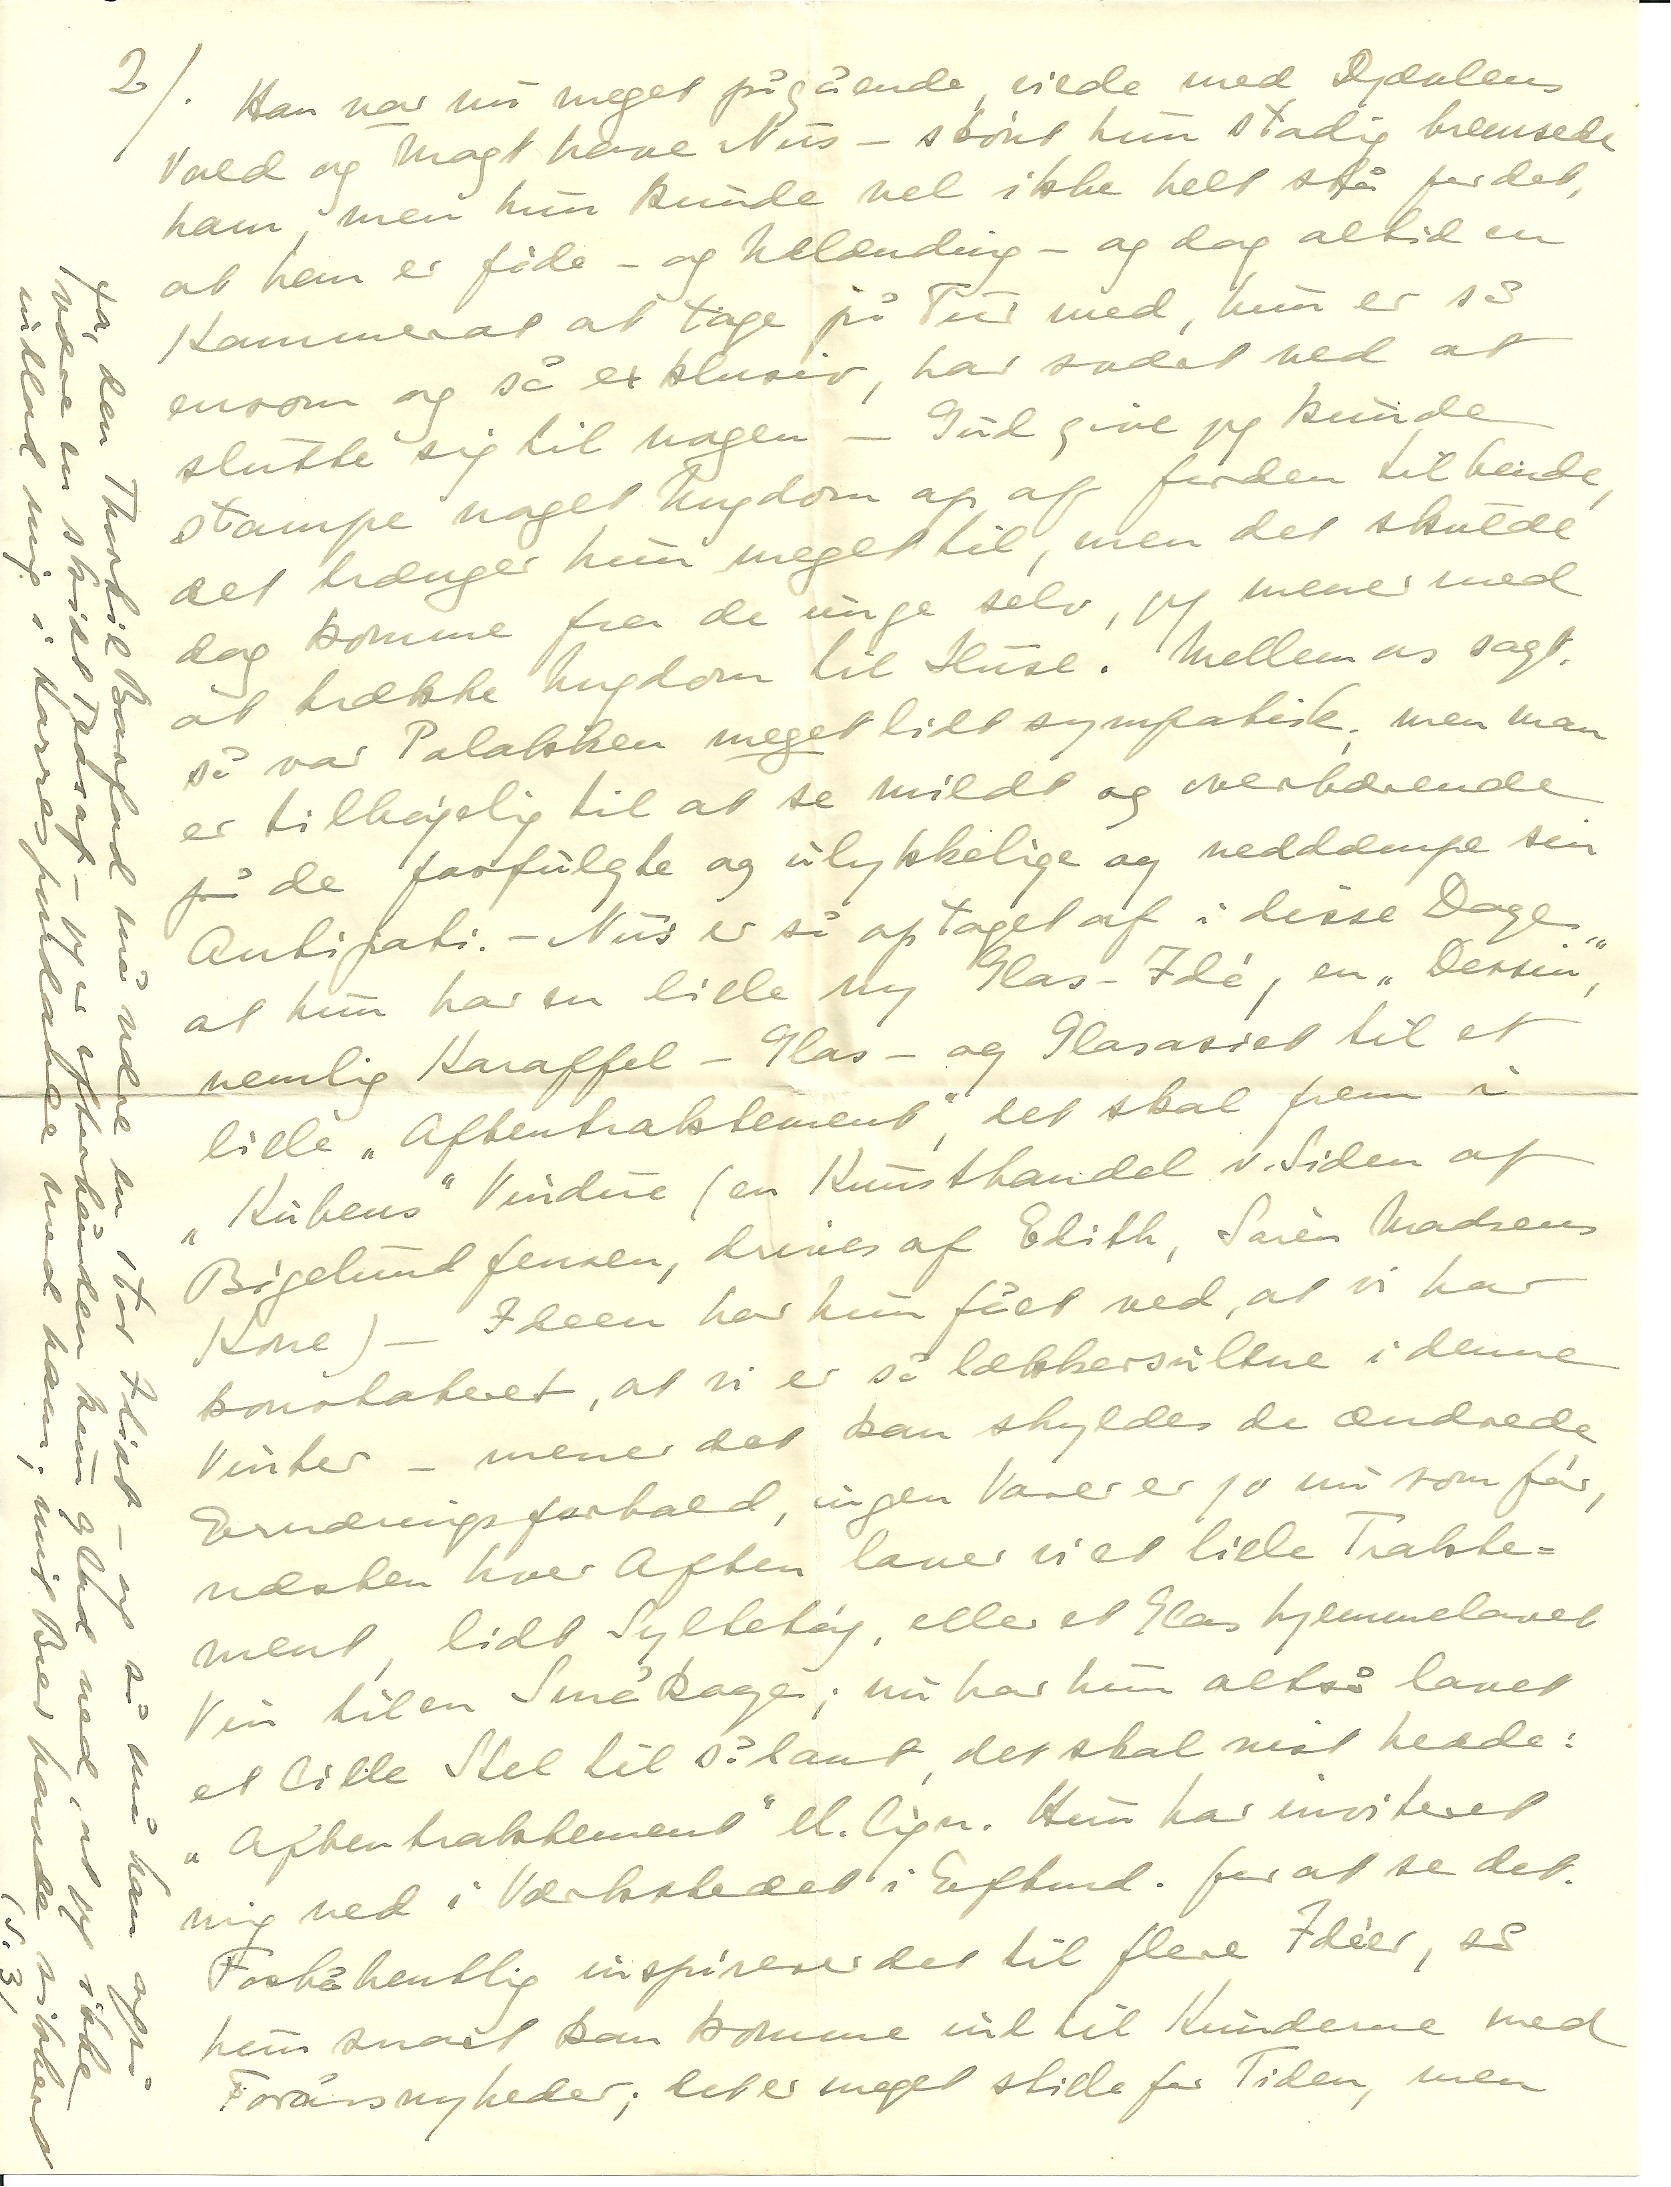 2/. Han var nu meget pågående, vilde med Djævlens
Vold og Magt have Nus – skønt hun stadig bremsede
ham, men hun kunde vel ikke helt stå for det,
at han er Jøde – og Udlænding – og dog altid en
Kammerat at tage på Tur med, hun er så
ensom og så exklusiv, har svært ved at
slutte sig til nogen – Gud give jeg kunde
stampe noget Ungdom op af Jorden til hende,
det trænger hun meget til, men det skulde
dog komme fra de unge selv, jeg mener med
at trække Ungdom til Huse. Mellem os sagt,
så var Polakken meget lidt sympatisk, men man
er tilbøjelig til at se mildt og overbærende
på de forfulgte og ulykkelige og neddæmpe sin
Antipati. – Nus er så optaget af i disse Dage,
at hun har en lille ny Glas-Idé, en „Dessin",
nemlig Karaffel – Glas – og Glasasiet til et
lille „Aftentraktement", det skal frem i
„Kubens" Vindue (en Kunsthandel v. Siden af
Bigelund Jensen, drives af Edith, Søren Madsens
Kone) – Ideen har hun fået ved, at vi har
konstateret, at vi er så lækkersultne i denne
Vinter – mener det kan skyldes de ændrede
Ernæringsforhold, ingen Varer er jo nu som før,
næsten hver Aften laver vi et lille Trakte=
ment, lidt Syltetøj, eller et Glas hjemmelavet
Vin til en Småkage; nu har hun altså lavet
et lille Stel til sålant, det skal vist hedde:
„Aftentraktement" el. lign. Hun har inviteret
mig ned i Værkstedet i Eftmd. for at se det.
Forhåbentlig inspirerer det til flere Idéer, så
hun snart kan komme ud til Kunderne med
Forårsnyheder; det er meget stille for Tiden, men
Ja, den Thorkil Barfod må være en stor Idiot – og så må han også
være en skidt Tværs – jeg er efterhånden kun glad ved, at jeg ikke
indlod mig i Korrespondance med ham; mit Brev havde sikkert
(S. 3/